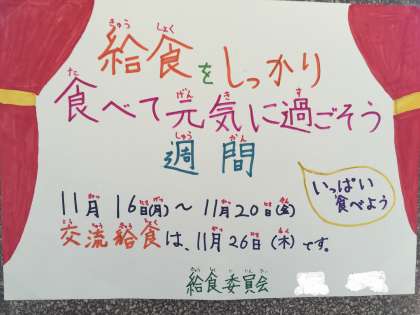 給食をしっかり
食べて元気に過ごそう
週間
11月16日(月)～11月20日(金)
いっぱい
食べよう
交流給食は、11月26日(木)です。
給食委員会